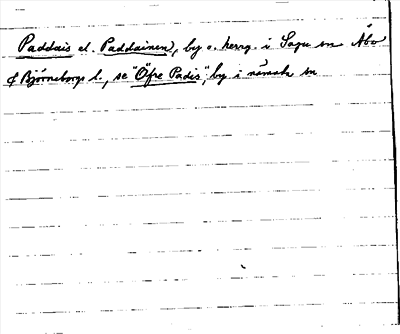 Paddais el. Paddainen, by o. herrg. i Sagu sn Åbo
& Björneborgs l., se "Öfre Padis", by i nämnda sn